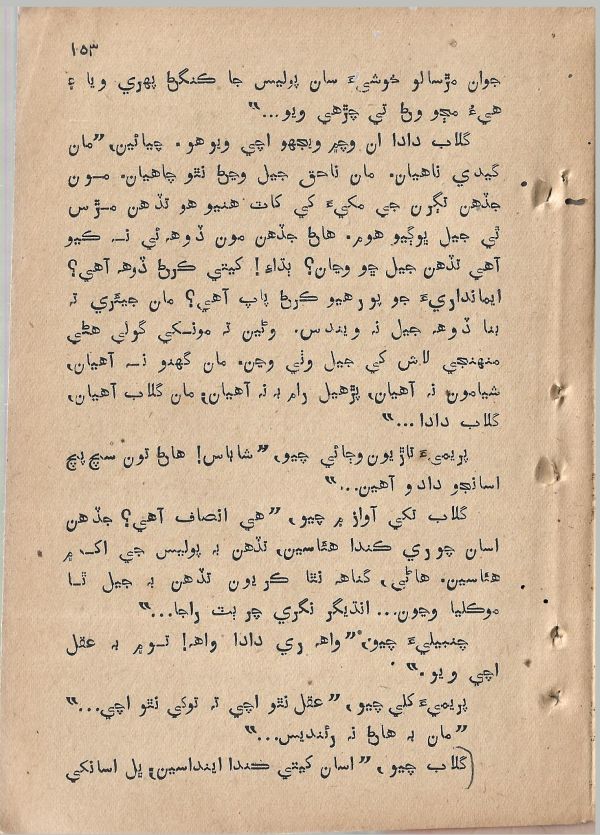 ١٥٣
جوان مڙسالو خوشيءَ سان پوليس جا ڪنگڻ پهري ويا ۽
هيءُ مڇو وڻ تي چڙهي ويو..."
گلاب دادا ان وچ ۾ ويجهو اچي ويو هو. چيائين، "مان
گيدي ناهيان. مان ناحق جيل وڃڻ نٿو چاهيان. مون
جڏهن نگرن جي مکيءَ کي کات هنيو هو تڏهن مڙس
ٿي جيل ڀوڳيو هوم. هاڻ جڏهن مون ڏوهه ئي نہ ڪيو
آهي تڏهن جيل ڇو وڃان؟ ٻڌاءِ! کيتي ڪرڻ ڏوهه آهي؟
ايمانداريءَ جو پورهيو ڪرڻ پاپ آهي؟ مان جيئري تہ
بنا ڏوهه جيل نہ ويندس. وڻين تہ مونکي گولي هڻي
منهنجي لاش کي جيل وٺي وڃن. مان گهنو نہ آهيان،
شيامون نہ آهيان، پڙهيل رام بہ نہ آهيان، مان گلاب آهيان،
گلاب دادا..."
پريميءَ تاڙيون وڄائي چيو، "شاباس! هاڻ تون سچ پچ
اسانجو دادو آهين..."
گلاب تکي آواز ۾ چيو، "هي انصاف آهي؟ جڏهن
اسان چوري ڪندا هئاسين، تڏهن بہ پوليس جي اک ۾
هئاسين. هاڻي، گناهه نٿا ڪريون تڏهن بہ جيل ٿا
موڪليا وڃون... انڌيگر نگري چرٻٽ راجا..."
چنبيليءَ چيو، "واهه ري دادا واهه! توم بہ عقل
اچي ويو."
پريميءَ کلي چيو، "عقل نٿو اچي تہ توکي نٿو اچي..."
"مان بہ هاڻ نہ رئنديس..."
گلاب چيو، "اسان کيتي ڪندا اينداسين، ڀل اسانکي